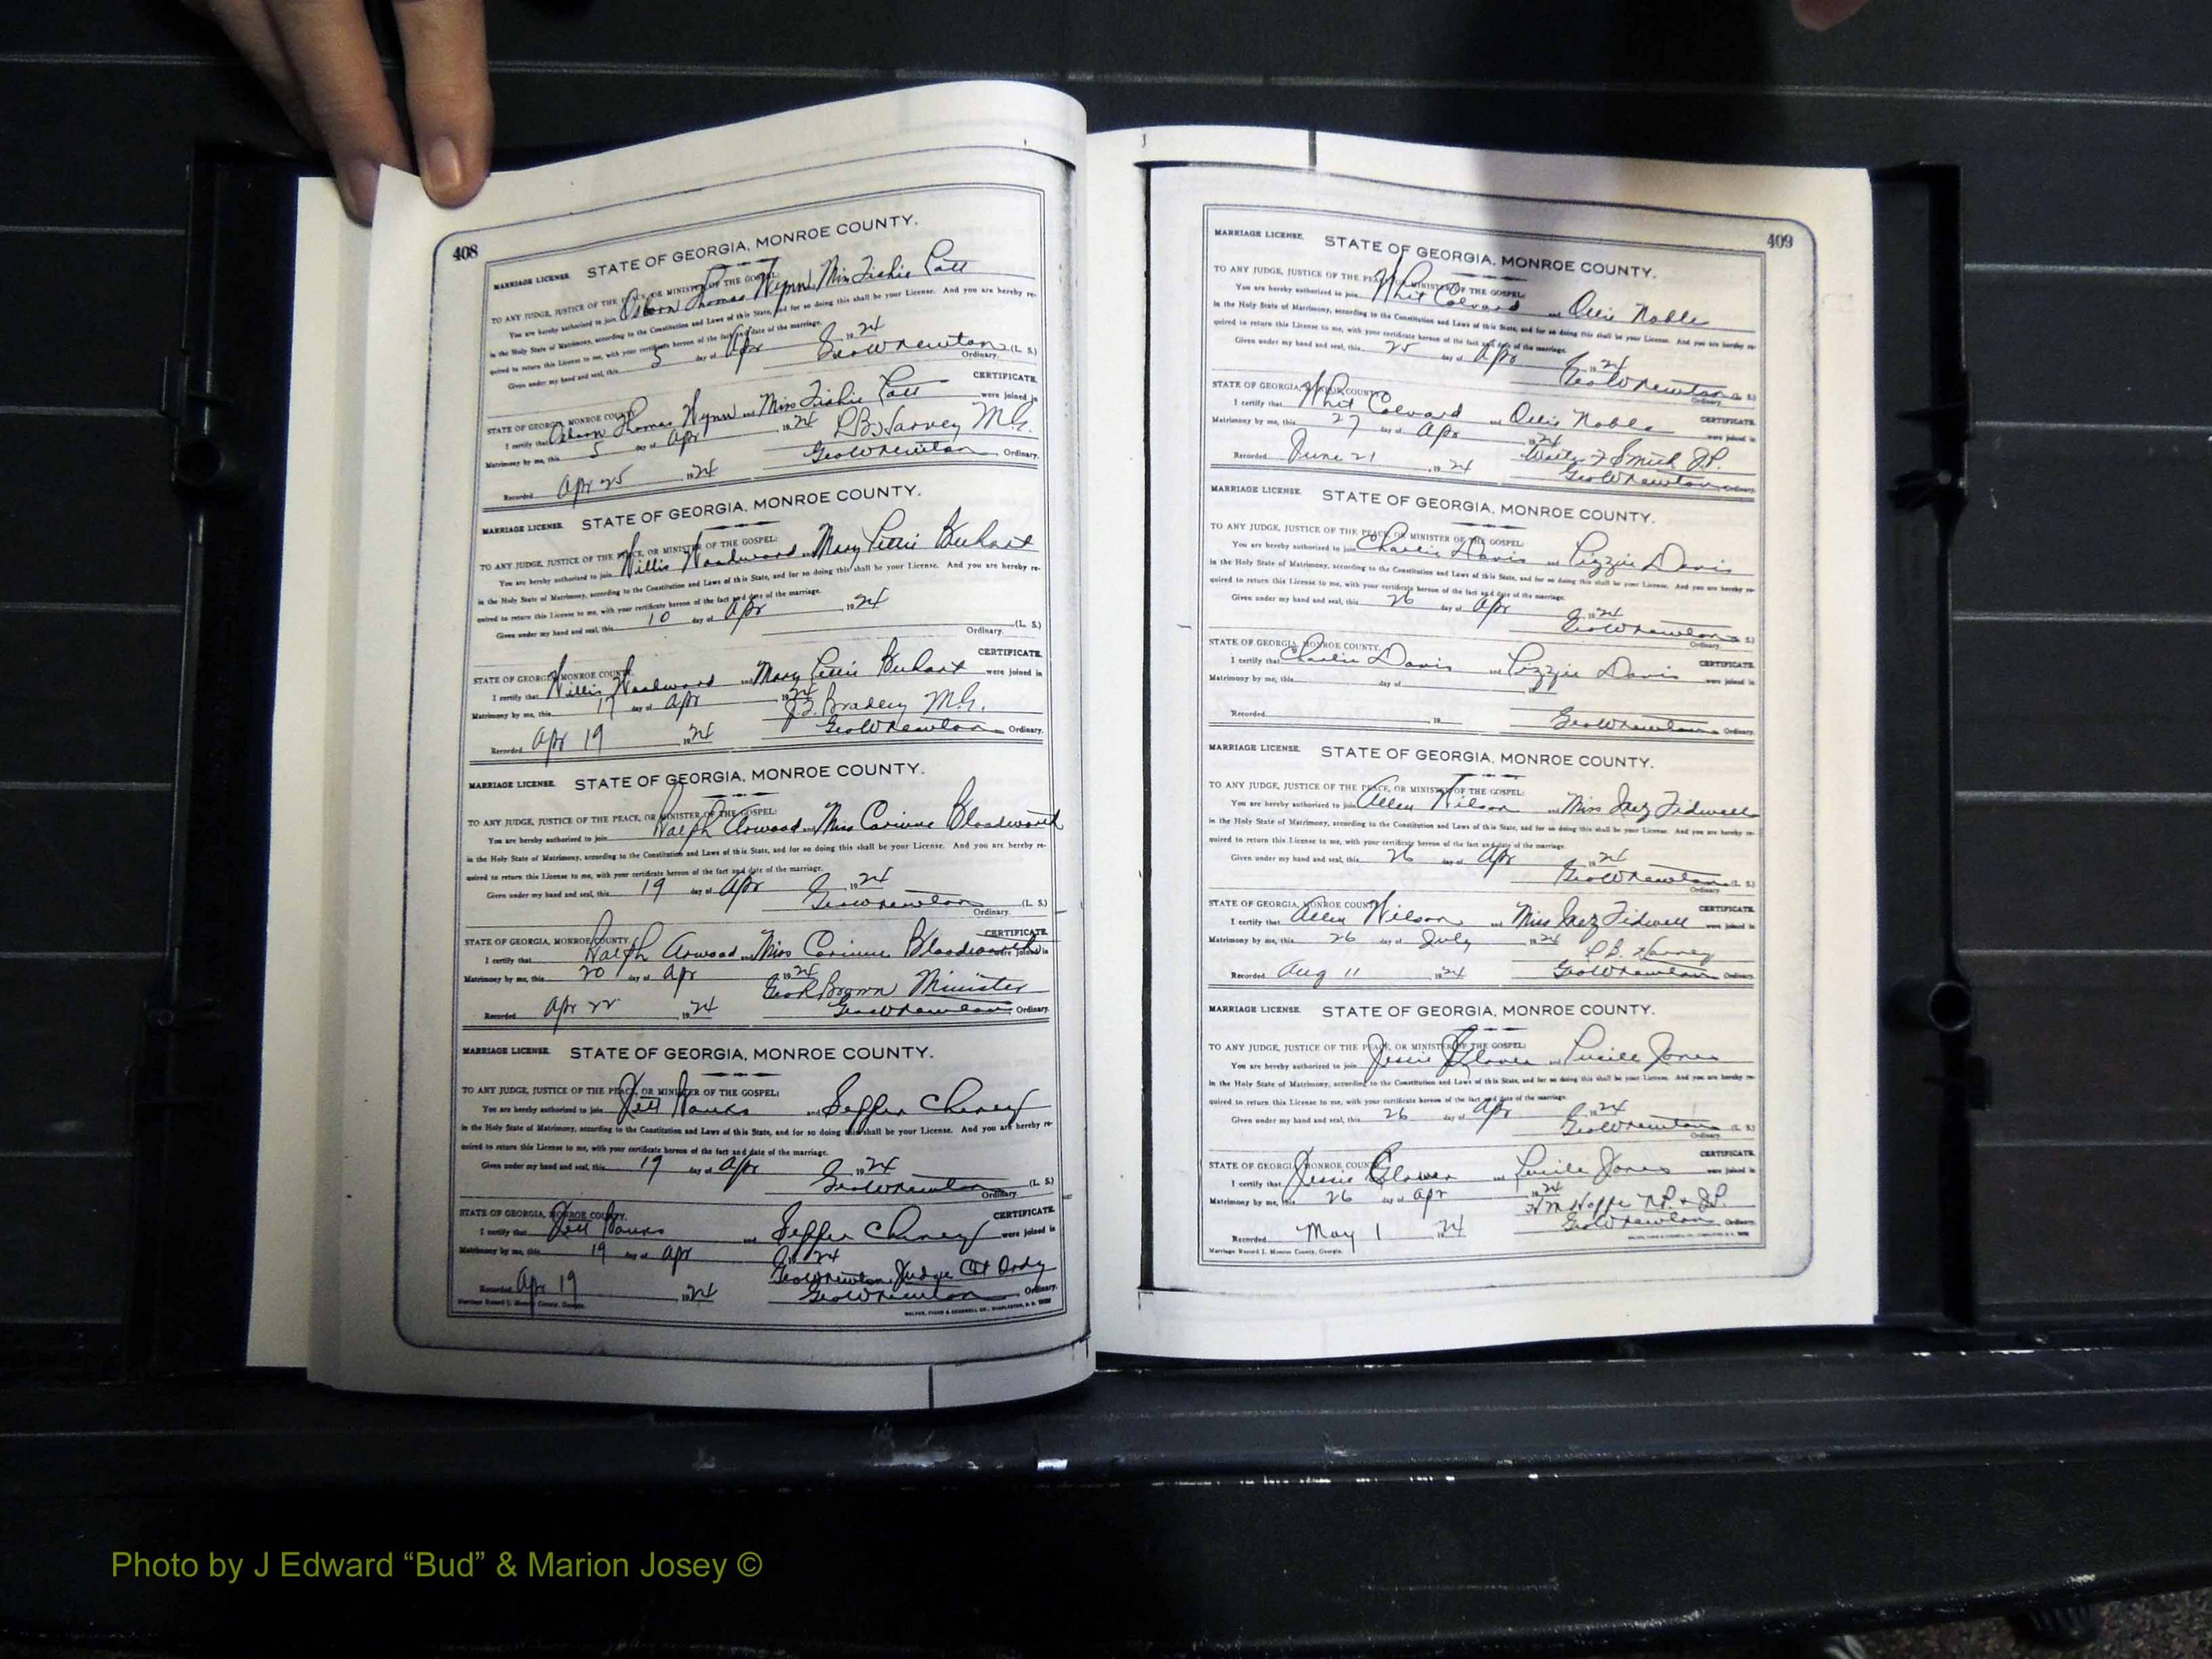 408
MARRIAGE LICENSE. STATE OF GEORGIA, MONROE COUNTY.
TO ANY JUDGE, JUSTICE OF THE PEACE, OR MINISTER OF THE GOSPEL:
You are hereby authorized to join Osborn Thomas Wynn Miss
in the Holy State of Matrimony, according to the Constitution and Laws of this State, and for so doing this shall be your License. And you are hereby re-
quired to return this License to me, with your certificate hereon of the fact and date of the marriage.
Given under my hand and seal, this 5 day of Apr 1924
Geo W Newton (L. S.)
Ordinary.
CERTIFICATE.
STATE OF GEORGIA, MONROE COUNTY.
I certify that Osborn Thomas Wynn and Miss were joined in
Matrimony by me, this 5 day of Apr 1924 R B Harvey M.G.
Recorded Apr 25 1924 Geo W Newton Ordinary.
MARRIAGE LICENSE. STATE OF GEORGIA, MONROE COUNTY.
TO ANY JUDGE, JUSTICE OF THE PEACE, OR MINISTER OF THE GOSPEL:
You are hereby authorized to join Willis Woodward and Mary
in the Holy State of Matrimony, according to the Constitution and Laws of this State, and for so doing this shall be your License. And you are hereby re-
quired to return this License to me, with your certificate hereon of the fact and date of the marriage.
Given under my hand and seal, this 10 day of Apr 1924
(L. S.)
Ordinary.
CERTIFICATE.
STATE OF GEORGIA, MONROE COUNTY.
I certify that Willis Woodward and Mary were joined in
Matrimony by me, this 17 day of Apr 1924 Bradley M.G.
Recorded Apr 19 1924 Geo W Newton Ordinary.
MARRIAGE LICENSE. STATE OF GEORGIA, MONROE COUNTY.
TO ANY JUDGE, JUSTICE OF THE PEACE, OR MINISTER OF THE GOSPEL:
You are hereby authorized to join Ralph Arwood and Miss Corinne Bloodworth
in the Holy State of Matrimony, according to the Constitution and Laws of this State, and for so doing this shall be your License. And you are hereby re-
quired to return this License to me, with your certificate hereon of the fact and date of the marriage.
Given under my hand and seal, this 19 day of Apr 1924
Geo W Newton (L. S.)
Ordinary.
CERTIFICATE.
STATE OF GEORGIA, MONROE COUNTY.
I certify that Ralph Arwood and Miss Corinne Bloodworth were joined in
Matrimony by me, this 20 day of Apr 1924
Geo R Brown Minister
Recorded Apr 22 1924 Geo W Newton Ordinary.
MARRIAGE LICENSE. STATE OF GEORGIA, MONROE COUNTY.
TO ANY JUDGE, JUSTICE OF THE PEACE, OR MINISTER OF THE GOSPEL:
You are hereby authorized to join and
in the Holy State of Matrimony, according to the Constitution and Laws of this State, and for so doing this shall be your License. And you are hereby re-
quired to return this License to me, with your certificate hereon of the fact and date of the marriage.
Given under my hand and seal, this 19 day of Apr 1924
Geo W Newton (L. S.)
Ordinary.
CERTIFICATE.
STATE OF GEORGIA, MONROE COUNTY.
I certify that and were joined in
Matrimony by me, this 19 day of Apr 1924
Geo W Newton, Judge Ct Ordy
Recorded Apr 19 1924 Geo W Newton Ordinary.
Marriage Record J. Monroe County, Georgia.
409
MARRIAGE LICENSE. STATE OF GEORGIA, MONROE COUNTY.
TO ANY JUDGE, JUSTICE OF THE PEACE, OR MINISTER OF THE GOSPEL:
You are hereby authorized to join Whit Colvard and Ollie Noble
in the Holy State of Matrimony, according to the Constitution and Laws of this State, and for so doing this shall be your License. And you are hereby re-
quired to return this License to me, with your certificate hereon of the fact and date of the marriage.
Given under my hand and seal, this 25 day of Apr 1924
Geo W Newton (L. S.)
Ordinary.
CERTIFICATE.
STATE OF GEORGIA, MONROE COUNTY.
I certify that Whit Colvard and Ollie Noble were joined in
Matrimony by me, this 27 day of Apr 1924
Smith J.P.
Recorded June 21 1924 Geo W Newton Ordinary.
MARRIAGE LICENSE. STATE OF GEORGIA, MONROE COUNTY.
TO ANY JUDGE, JUSTICE OF THE PEACE, OR MINISTER OF THE GOSPEL:
You are hereby authorized to join Charlie Davis and Lizzie Davis
in the Holy State of Matrimony, according to the Constitution and Laws of this State, and for so doing this shall be your License. And you are hereby re-
quired to return this License to me, with your certificate hereon of the fact and date of the marriage.
Given under my hand and seal, this 26 day of Apr 1924
Geo W Newton (L. S.)
Ordinary.
CERTIFICATE.
STATE OF GEORGIA, MONROE COUNTY.
I certify that Charlie Davis and Lizzie Davis were joined in
Matrimony by me, this day of 19
Recorded 19 Geo W Newton Ordinary.
MARRIAGE LICENSE. STATE OF GEORGIA, MONROE COUNTY.
TO ANY JUDGE, JUSTICE OF THE PEACE, OR MINISTER OF THE GOSPEL:
You are hereby authorized to join Allen Wilson and Miss Inez Tidwell
in the Holy State of Matrimony, according to the Constitution and Laws of this State, and for so doing this shall be your License. And you are hereby re-
quired to return this License to me, with your certificate hereon of the fact and date of the marriage.
Given under my hand and seal, this 26 day of Apr 1924
Geo W Newton (L. S.)
Ordinary.
CERTIFICATE.
STATE OF GEORGIA, MONROE COUNTY.
I certify that Allen Wilson and Miss Inez Tidwell were joined in
Matrimony by me, this 26 day of July 1924
R B. Harvey
Recorded Aug 11 1924 Geo W Newton Ordinary.
MARRIAGE LICENSE. STATE OF GEORGIA, MONROE COUNTY.
TO ANY JUDGE, JUSTICE OF THE PEACE, OR MINISTER OF THE GOSPEL:
You are hereby authorized to join Jessie Glover and Lucile Jones
in the Holy State of Matrimony, according to the Constitution and Laws of this State, and for so doing this shall be your License. And you are hereby re-
quired to return this License to me, with your certificate hereon of the fact and date of the marriage.
Given under my hand and seal, this 26 day of Apr 1924
Geo W Newton (L. S.)
Ordinary.
CERTIFICATE.
STATE OF GEORGIA, MONROE COUNTY.
I certify that Jessie Glover and Lucile Jones were joined in
Matrimony by me, this 26 day of Apr 1924
N.P. & J.P.
Recorded May 1 1924 Geo W Newton Ordinary.
Marriage Record J. Monroe County, Georgia.
Photo by J Edward “Bud” & Marion Josey ©